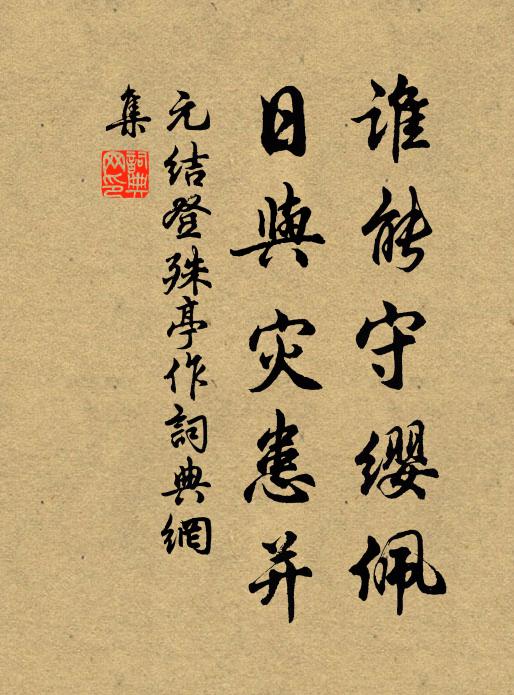 谁能守缨佩
日与灾患并
元结登殊亭作詞典網
集
詞典
网印